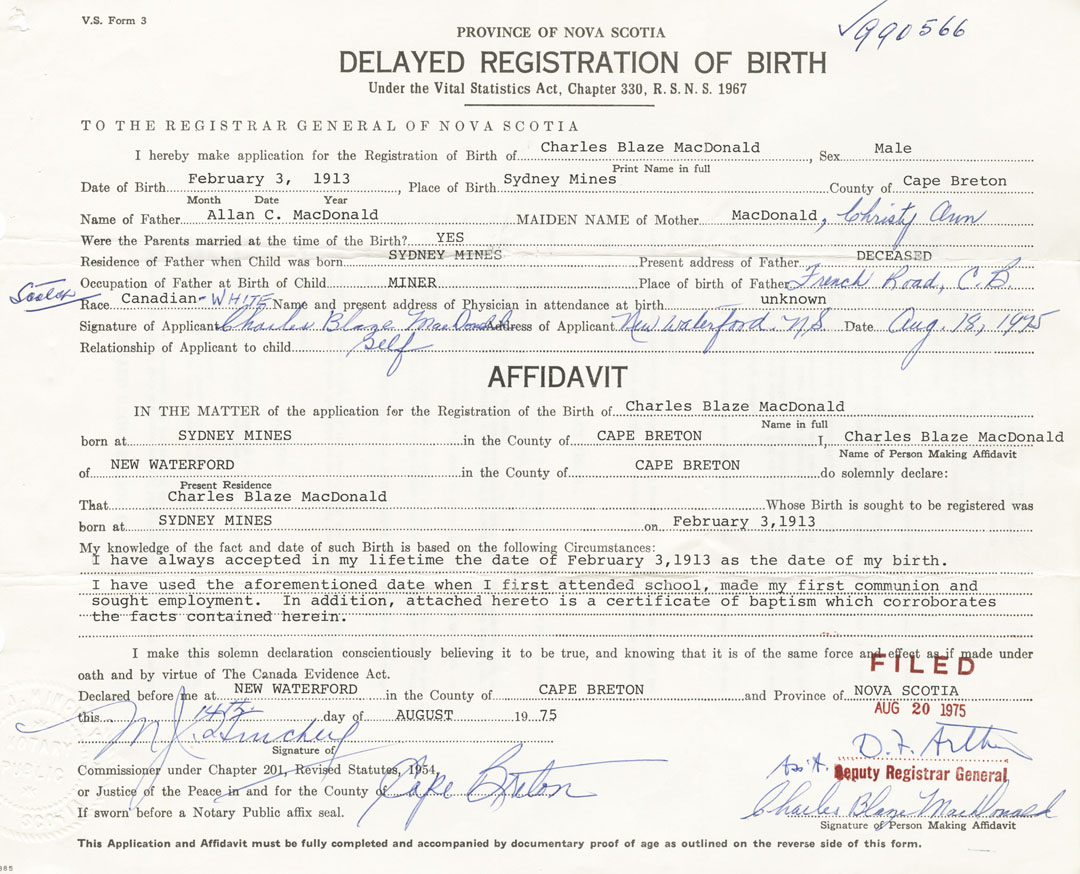 V.S. Form 3
990566
PROVINCE OF NOVA SCOTIA
DELAYED REGISTRATION OF BIRTH
Under the Vital Statistics Act, Chapter 330, R. S. N. S. 1967
TO THE REGISTRAR GENERAL OF NOVA SCOTIA
I hereby make application for the Registration of Birth of Charles Blaze MacDonald, Sex Male
Print Name in full
Date of Birth February 3, 1913, Place of Birth Sydney Mines County of Cape Breton
Month Date Year
Name of Father Allan C. MacDonald MAIDEN NAME of Mother MacDonald, Christy Ann
Were the Parents married at the time of the Birth? YES
Residence of Father when Child was born SYDNEY MINES Present address of Father DECEASED
Occupation of Father at Birth of Child MINER Place of birth of Father French Road, C.B.
Race Canadian-WHITE Name and present address of Physician in attendance at birth unknown
Signature of Applicant Charles Blaze MacDonald Address of Applicant New Waterford. N.S. Date Aug. 18, 1975
Relationship of Applicant to child Self
AFFIDAVIT
IN THE MATTER of the application for the Registration of the Birth of Charles Blaze MacDonald
Name in full
born at SYDNEY MINES in the County of CAPE BRETON I, Charles Blaze MacDonald
Name of Person Making Affidavit
of NEW WATERFORD in the County of CAPE BRETON do solemnly declare:
Present Residence
That Charles Blaze MacDonald Whose Birth is sought to be registered was
born at SYDNEY MINES on February 3,1913
My knowledge of the fact and date of such Birth is based on the following Circumstances:
I have always accepted in my lifetime the date of February 3,1913 as the date of my birth.
I have used the aforementioned date when I first attended school, made my first communion and
sought employment. In addition, attached hereto is a certificate of baptism which corroborates
the facts contained herein.
I make this solemn declaration conscientiously believing it to be true, and knowing that it is of the same force and effect as if made under
oath and by virtue of The Canada Evidence Act.
FILED
Declared before me at NEW WATERFORD in the County of CAPE BRETON and Province of NOVA SCOTIA
AUG 20 1975
this 14th day of AUGUST 1975
Signature of
Commissioner under Chapter 201, Revised Statutes, 1954,
Ass't. Deputy Registrar General
or Justice of the Peace in and for the County of Cape Breton
Charles Blaze MacDonald
If sworn before a Notary Public affix seal.
Signature of Person Making Affidavit
This Application and Affidavit must be fully completed and accompanied by documentary proof of age as outlined on the reverse side of this form.